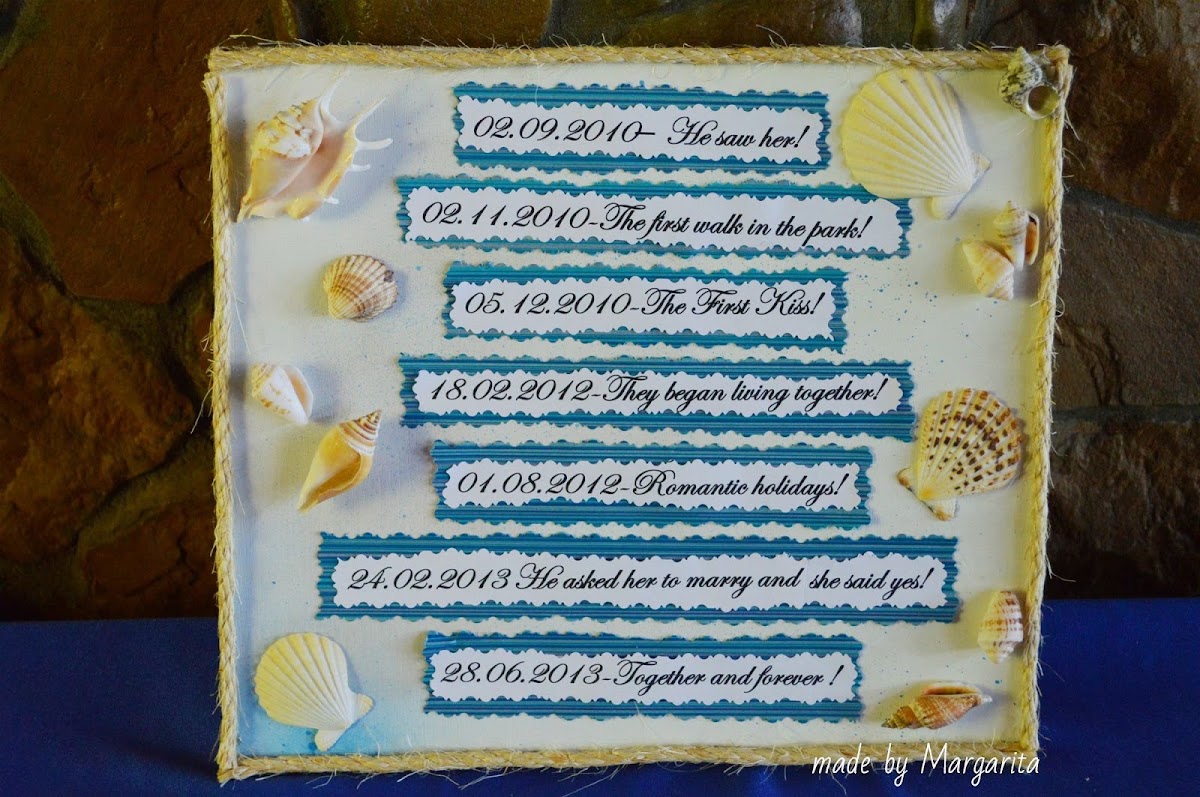 02.09.2010- He saw her!
02.11.2010-The first walk in the park!
05.12.2010-The First Kiss!
18.02.2012-They began living together!
01.08.2012-Romantic holidays!
24.02.2013 He asked her to marry and she said yes!
28.06.2013-Together and forever !
made by Margarita